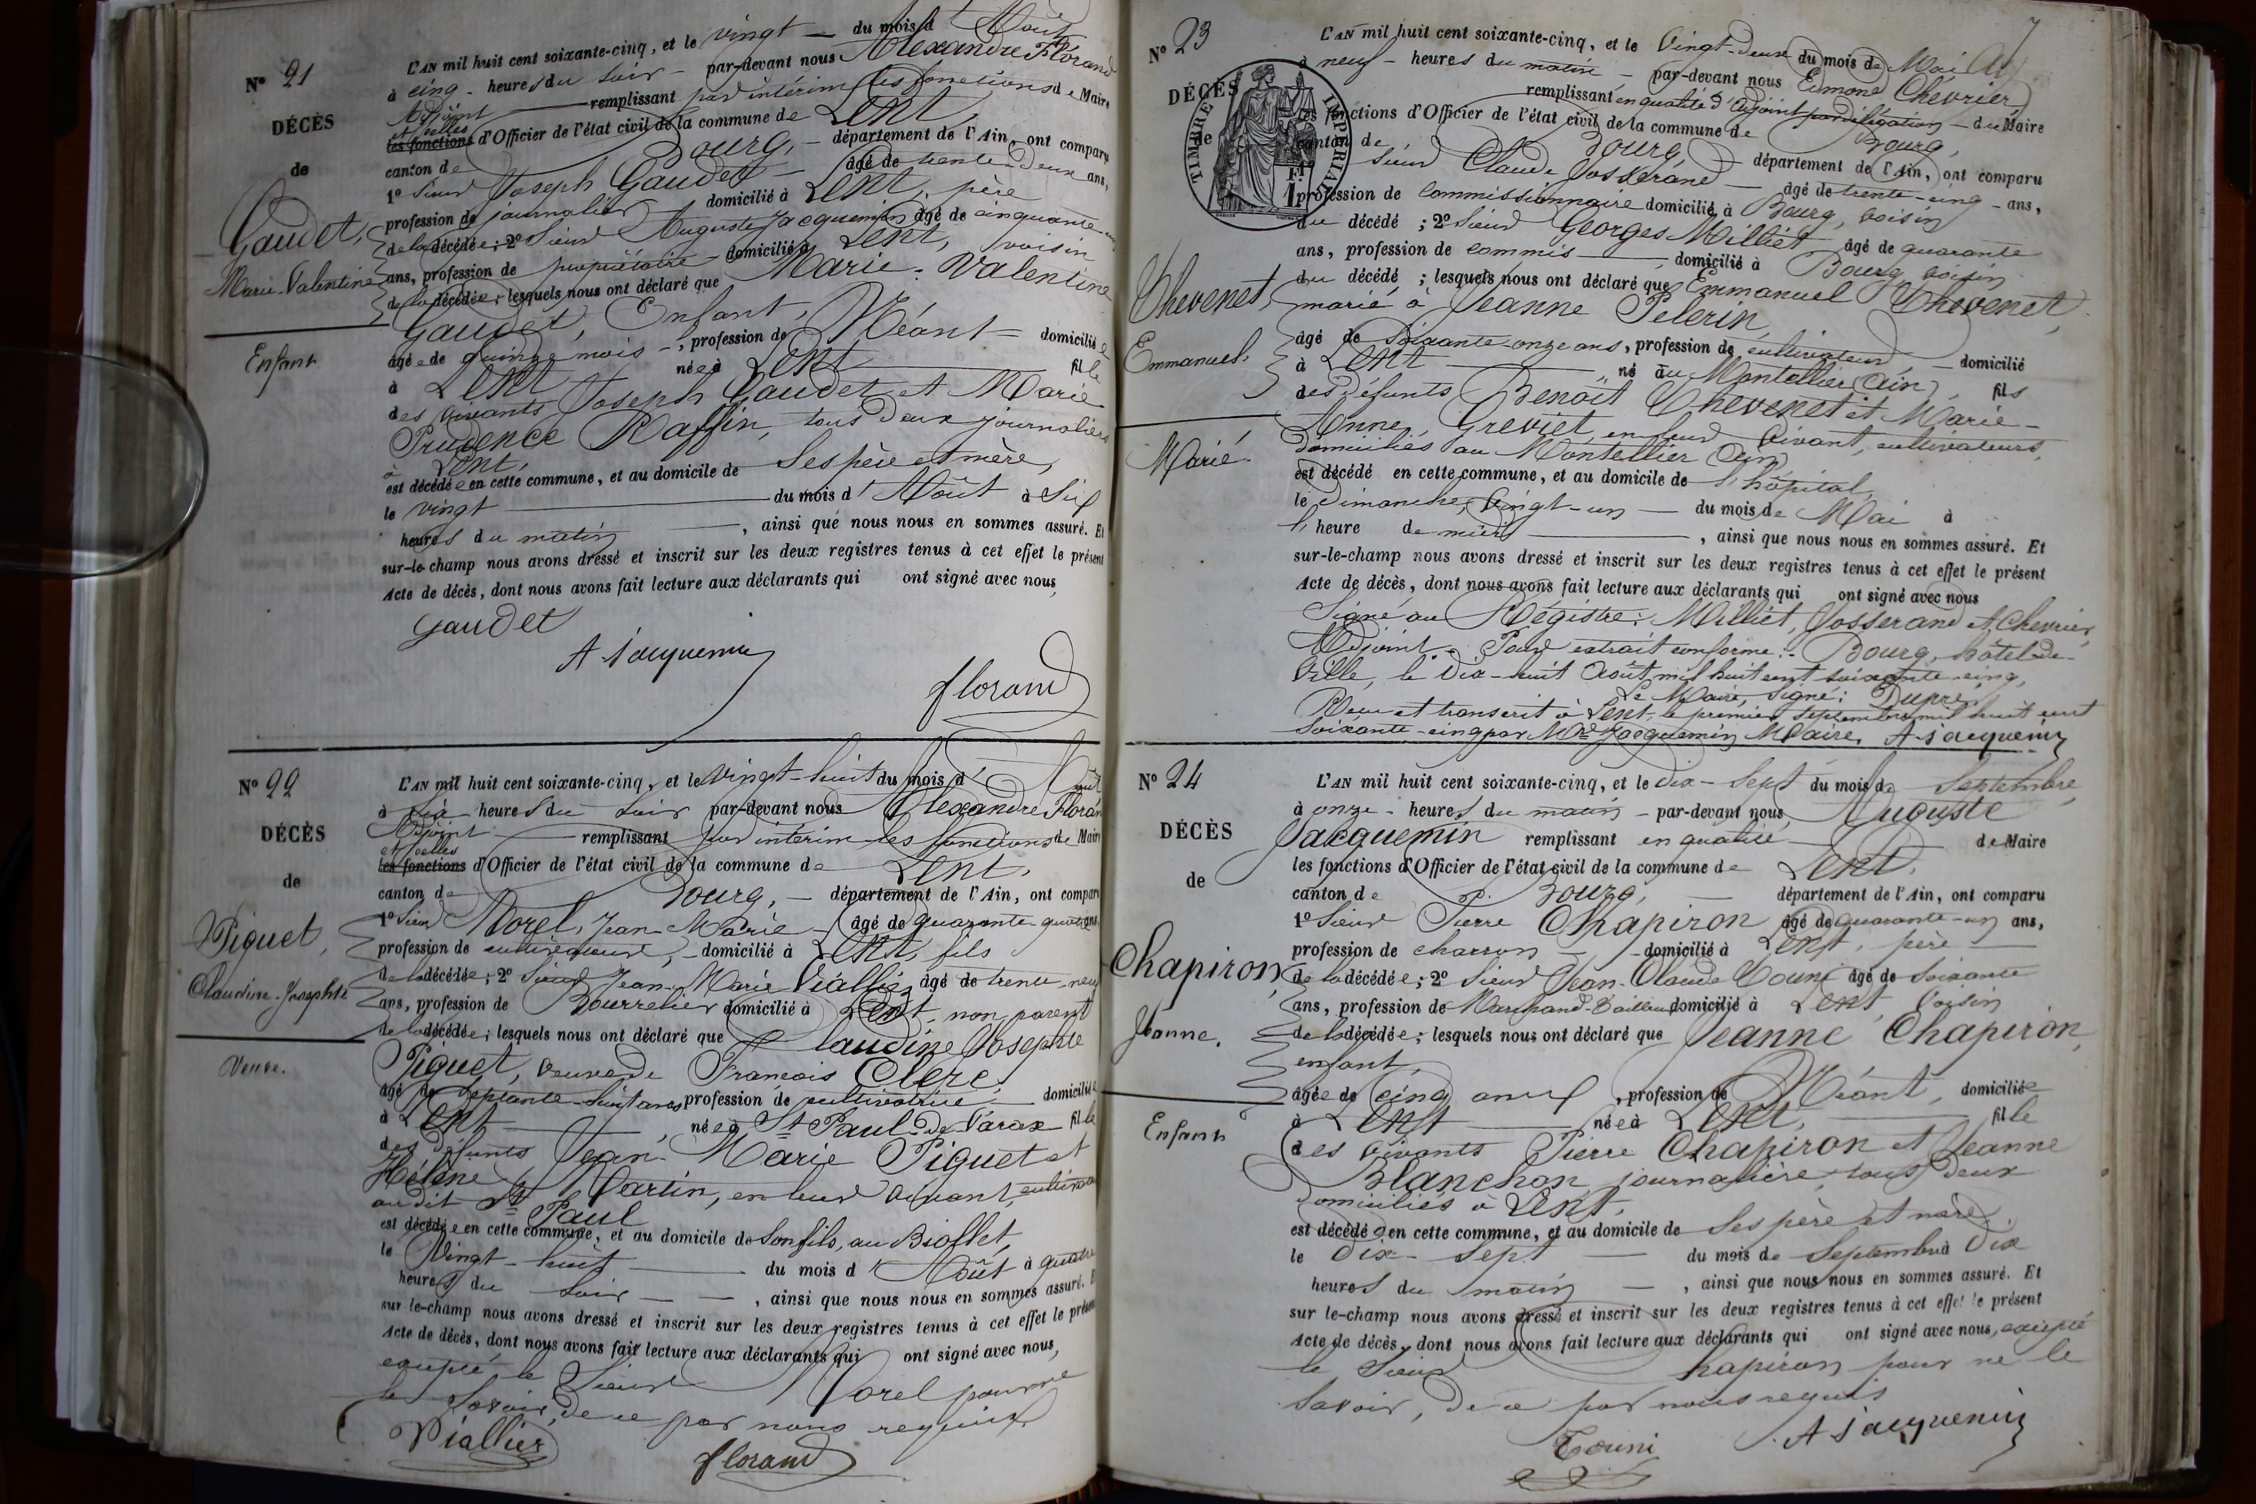 N° 21
DÉCÈS
de
Gaudet,
Marie-Valentine
Enfant
L'AN mil huit cent soixante-cinq, et le vingt — du mois d'Août
à cinq - heures du soir - par-devant nous Alexandre Florand
Adjoint — remplissant par intérim les fonctions de Maire
et celles
les fonctions d'Officier de l'état civil de la commune de Lent,
canton de Bourg, — département de l'Ain, ont comparu
1° Sieur Joseph Gaudet — âgé de trente-deux ans,
profession de journalier domicilié à Lent, père
de la décédée; 2° Sieur Auguste Jacquemin âgé de cinquante-
ans, profession de propriétaire - domicilié à Lent, voisin
de la décédée; lesquels nous ont déclaré que Marie-Valentine
Gaudet, Enfant,
âgée de quinze mois -, profession de Néant = domiciliée
à Lent née à Lent fille
des vivants Joseph Gaudet et Marie
Prudence Raffin, tous deux journaliers
à Lent,
est décédée en cette commune, et au domicile de Ses père et mère,
le vingt — du mois d'Août à Six
heures du matin —, ainsi que nous nous en sommes assuré. Et
sur-le-champ nous avons dressé et inscrit sur les deux registres tenus à cet effet le présent
Acte de décès, dont nous avons fait lecture aux déclarants qui ont signé avec nous,
Gaudet
A Jacquemin
florand
N° 22
DÉCÈS
de
Piguet,
Claudine-Josephte
Veuve.
L'AN mil huit cent soixante-cinq, et le vingt-huit du mois d'Août
à six heures du soir par-devant nous Alexandre Florand
Adjoint — remplissant par intérim les fonctions de Maire
et celles
les fonctions d'Officier de l'état civil de la commune de Lent,
canton de Bourg, — département de l'Ain, ont comparu
1° Sieur Morel, Jean-Marie — âgé de quarante-quatre ans,
profession de cultivateur, - domicilié à Lent, fils
de la décédée; 2° Sieur Jean-Marie Viallier, âgé de trente-neuf
ans, profession de Bourrelier domicilié à Lent, non parent
de la décédée; lesquels nous ont déclaré que Claudine Josephte
Piguet, veuve de François Clerc,
âgé de septante-huit ans, profession de cultivatrice - domiciliée
à Lent —, née à St Paul-de-Varax fille
des défunts Jean-Marie Piguet et
Hélène Martin, en leur vivant, cultivateurs
audit St Paul
est décédée en cette commune, et au domicile de Son fils, au Biollet,
le Vingt-huit — du mois d'Août à quatre
heures du soir — —, ainsi que nous nous en sommes assuré. Et
sur-le-champ nous avons dressé et inscrit sur les deux registres tenus à cet effet le présent
Acte de décès, dont nous avons fait lecture aux déclarants qui ont signé avec nous,
excepté le Sieur Morel pour ne
le Savoir, de ce par nous requis
Viallier
florand
7
N° 23
DÉCÈS
de
TIMBRE IMPÉRIAL
1 F
Chevenet,
Emmanuel.
Marié.
L'AN mil huit cent soixante-cinq, et le Vingt-deux du mois de Mai
à neuf - heures du matin — par-devant nous Edmond Chevrier,
remplissant en qualité d'adjoint par délégation — du Maire
les fonctions d'Officier de l'état civil de la commune de Bourg,
canton de Bourg, — département de l'Ain, ont comparu
Sieur Claude Josserand — âgé de trente-cinq - ans,
profession de commissionnaire domicilié à Bourg, voisin
du décédé; 2° Sieur Georges Milliet âgé de quarante
ans, profession de commis —, domicilié à Bourg, voisin
du décédé; lesquels nous ont déclaré que Emmanuel Chevenet,
marié à Jeanne Pelerin,
âgé de Soixante-onze ans, profession de cultivateur, — domicilié
à Lent —, né au Montellier (Ain), fils
des défunts Benoît Chevenet et Marie-
Anne, Greviet, en leur vivant, cultivateurs,
domiciliés au Montellier (Ain)
est décédé en cette commune, et au domicile de l'hôpital,
le dimanche, Vingt-un — du mois de Mai à
l'heure de midi —, ainsi que nous nous en sommes assuré. Et
sur-le-champ nous avons dressé et inscrit sur les deux registres tenus à cet effet le présent
Acte de décès, dont nous avons fait lecture aux déclarants qui ont signé avec nous
Signé au Régistre: Milliet, Josserand et Chevrier,
Adjoint. Pour extrait conforme: - Bourg, hôtel-de-
Ville, le dix-huit Août mil huit cent soixante-cinq,
Le Maire, Signé: Dupré.
Reçu et transcrit à Lent, le premier septembre mil huit cent
soixante-cinq par Mr Jacquemin, Maire, A Jacquemin
N° 24
DÉCÈS
de
Chapiron,
Jeanne.
Enfant
L'AN mil huit cent soixante-cinq, et le dix-sept du mois de Septembre,
à onze - heures du matin — par-devant nous Auguste
Jacquemin remplissant en qualité — de Maire
les fonctions d'Officier de l'état civil de la commune de Lent,
canton de Bourg, — département de l'Ain, ont comparu
1° Sieur Pierre Chapiron âgé de quarante-un ans,
profession de charron — domicilié à Lent, père —
de la décédée; 2° Sieur Jean-Claude Touni âgé de soixante
ans, profession de Marchand-Tailleur domicilié à Lent, Voisin
de la décédée; lesquels nous ont déclaré que Jeanne Chapiron,
enfant,
âgée de cinq ans, profession de Néant, domiciliée
à Lent — née à Lent, — fille
des vivants Pierre Chapiron et Jeanne
Blanchon, journalière, tous deux
domiciliés à Lent,
est décédée en cette commune, et au domicile de Ses père et mère
le dix-sept — du mois de Septembre à dix
heures du matin —, ainsi que nous nous en sommes assuré. Et
sur le-champ nous avons dressé et inscrit sur les deux registres tenus à cet effet le présent
Acte de décès, dont nous avons fait lecture aux déclarants qui ont signé avec nous, excepté
le Sieur Chapiron pour ne le
Savoir, de ce par nous requis
A Jacquemin
Touni